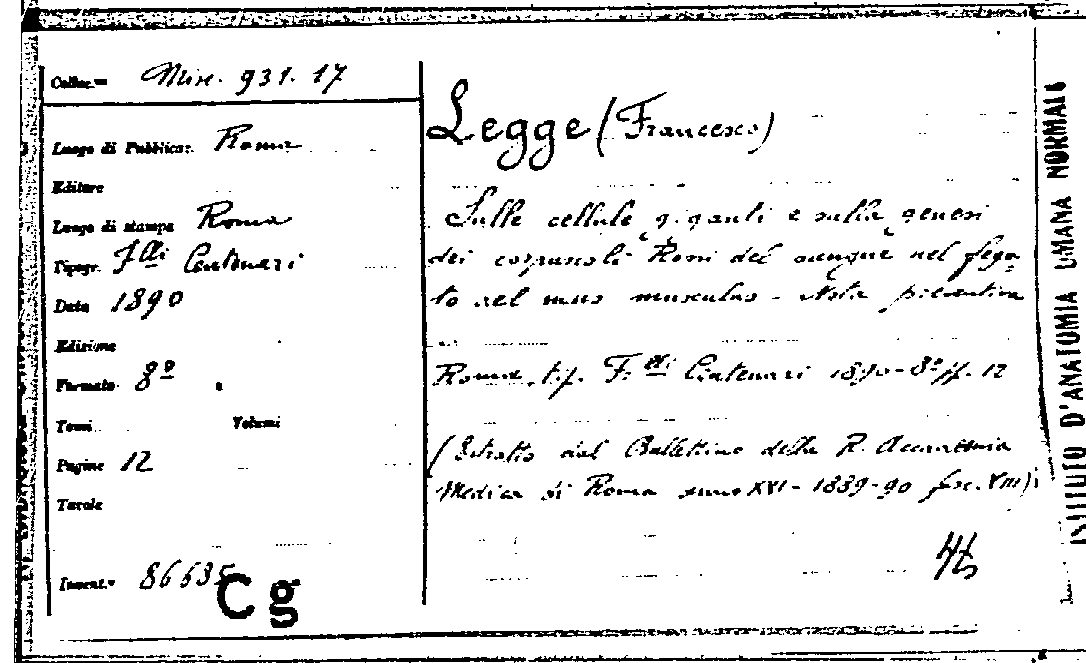 Colloc.ne Misc. 931. 17
Luogo di Pubblicaz. Roma
Editore
Luogo di stampa Roma
Tipogr. F.lli Centenari
Data 1890
Edizione
Formato 8º
Tomi Volumi
Pagine 12
Tavole
Invent.º 86635
Cg
Legge (Francesco)
Sulle cellule giganti e sulla genesi
dei corpuscoli Rossi del sangue nel fega-
to del mus musculus - Nota preventiva
Roma, tip. F.lli Centenari 1890 - 8º pp. 12
(Estratto dal Bullettino della R. Accademia
Medica di Roma anno XVI - 1889-90 fasc. VIII)
ISTITUTO D'ANATOMIA UMANA NORMALE